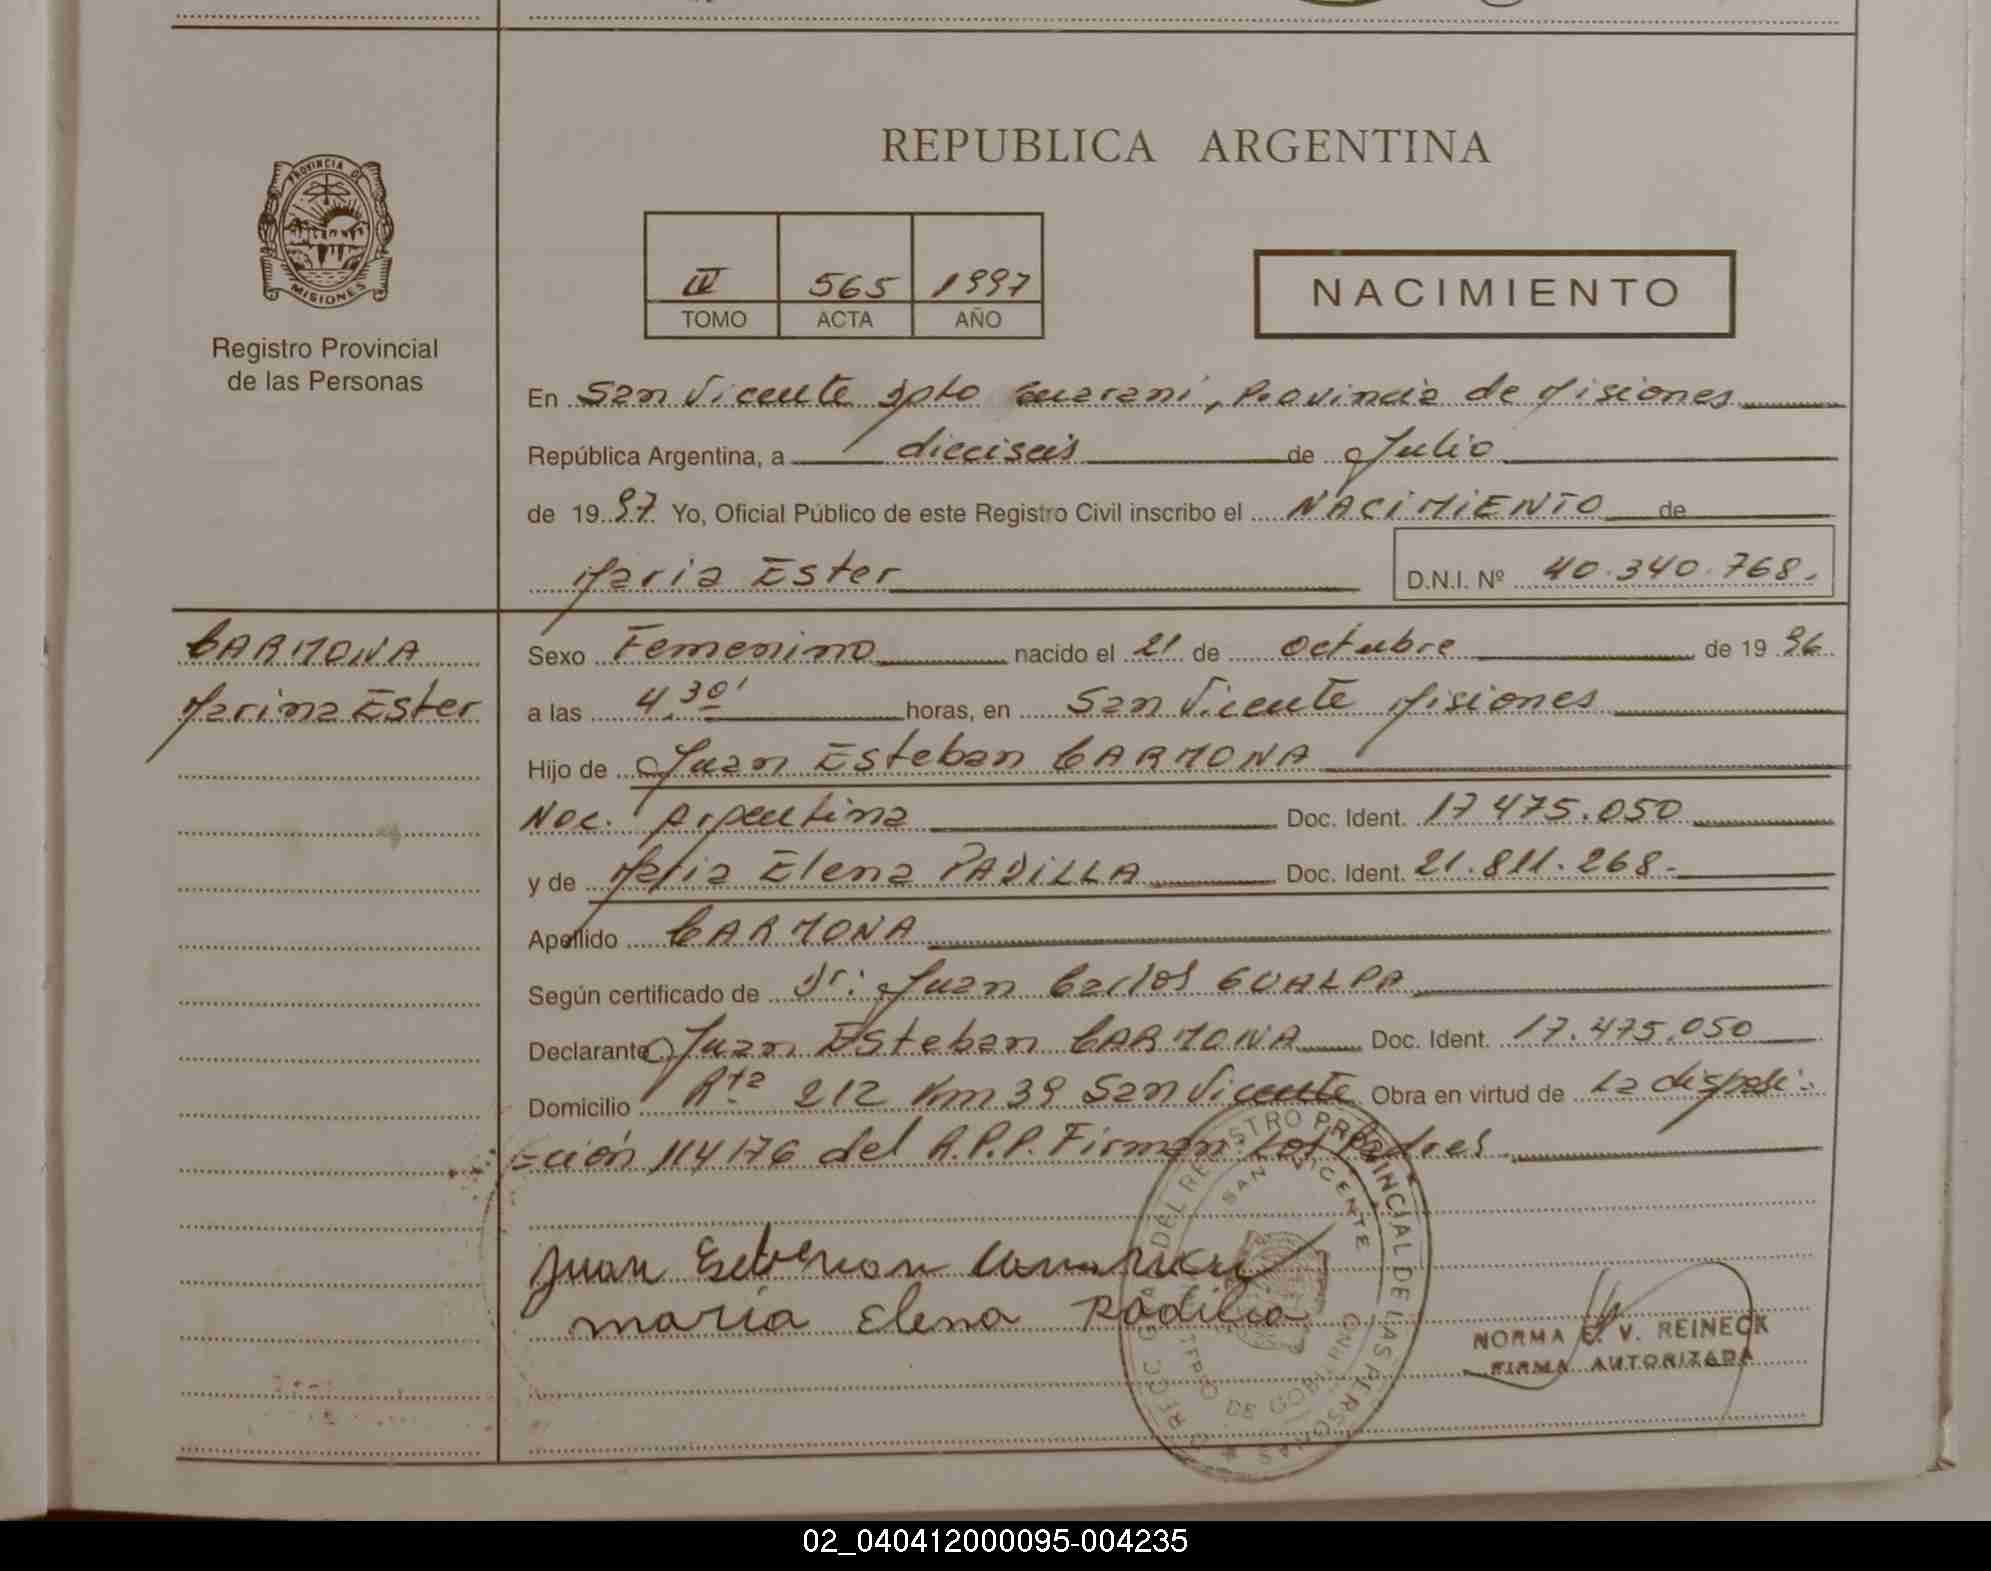 REPUBLICA ARGENTINA
PROVINCIA DE
MISIONES
Registro Provincial
de las Personas
IV 565 1997
TOMO ACTA AÑO
NACIMIENTO
En San Vicente Dpto Guarani, Provincia de Misiones
República Argentina, a dieciseis de Julio
de 1997 Yo, Oficial Público de este Registro Civil inscribo el NACIMIENTO de
Maria Ester D.N.I. Nº 40.340.768.
CARMONA
Marina Ester
Sexo Femenino nacido el 21 de octubre de 1996
a las 4.30' horas, en San Vicente Misiones
Hijo de Juan Esteban CARMONA
Nac. Argentina Doc. Ident. 17.475.050
y de Maria Elena PADILLA Doc. Ident. 21.811.268.-
Apellido CARMONA
Según certificado de Dr: Juan Carlos GUALPA
Declarante Juan Esteban CARMONA Doc. Ident. 17.475.050
Domicilio Rta 212 Km 39 San Vicente Obra en virtud de la disposi-
-ción 114176 del R.P.P. Firman Los Padres
Juan Esteban Carmona
maria Elena Padilla
DEL REGISTRO PROVINCIAL DE LAS PERSONAS
SAN VICENTE
DE GOBIERNO
NORMA E. V. REINECK
FIRMA AUTORIZADA
02_040412000095-004235